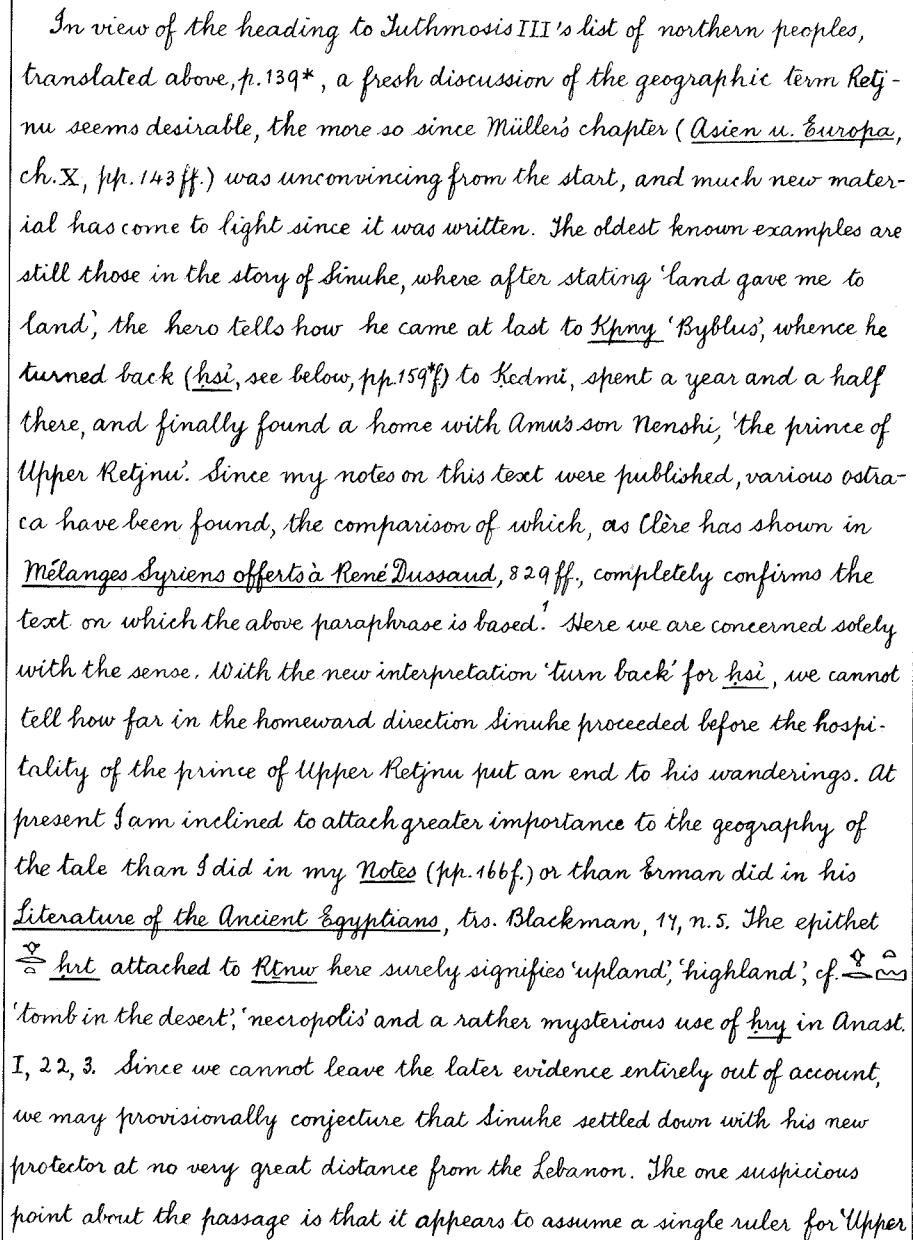 In view of the heading to Tuthmosis III's list of northern peoples,
translated above, p. 139*, a fresh discussion of the geographic term Retj-
nu seems desirable, the more so since Müller's chapter (Asien u. Europa,
ch. X, pp. 143 ff.) was unconvincing from the start, and much new mater-
ial has come to light since it was written. The oldest known examples are
still those in the story of Sinuhe, where after stating 'land gave me to
land', the hero tells how he came at last to Kpny 'Byblus', whence he
turned back (ḥsi, see below, pp. 159*f.) to Ḳedmi, spent a year and a half
there, and finally found a home with Amu's son Nenshi, 'the prince of
Upper Retjnu'. Since my notes on this text were published, various ostra-
ca have been found, the comparison of which, as Clère has shown in
Mélanges Syriens offerts à René Dussaud, 829 ff., completely confirms the
text on which the above paraphrase is based.¹ Here we are concerned solely
with the sense. With the new interpretation 'turn back' for ḥsi, we cannot
tell how far in the homeward direction Sinuhe proceeded before the hospi-
tality of the prince of Upper Retjnu put an end to his wanderings. At
present I am inclined to attach greater importance to the geography of
the tale than I did in my Notes (pp. 166 f.) or than Erman did in his
Literature of the Ancient Egyptians, trs. Blackman, 17, n. 5. The epithet
ḥrt attached to Rṯnw here surely signifies 'upland', 'highland', cf.
'tomb in the desert', 'necropolis' and a rather mysterious use of ḥry in Anast.
I, 22, 3. Since we cannot leave the later evidence entirely out of account,
we may provisionally conjecture that Sinuhe settled down with his new
protector at no very great distance from the Lebanon. The one suspicious
point about the passage is that it appears to assume a single ruler for 'Upper